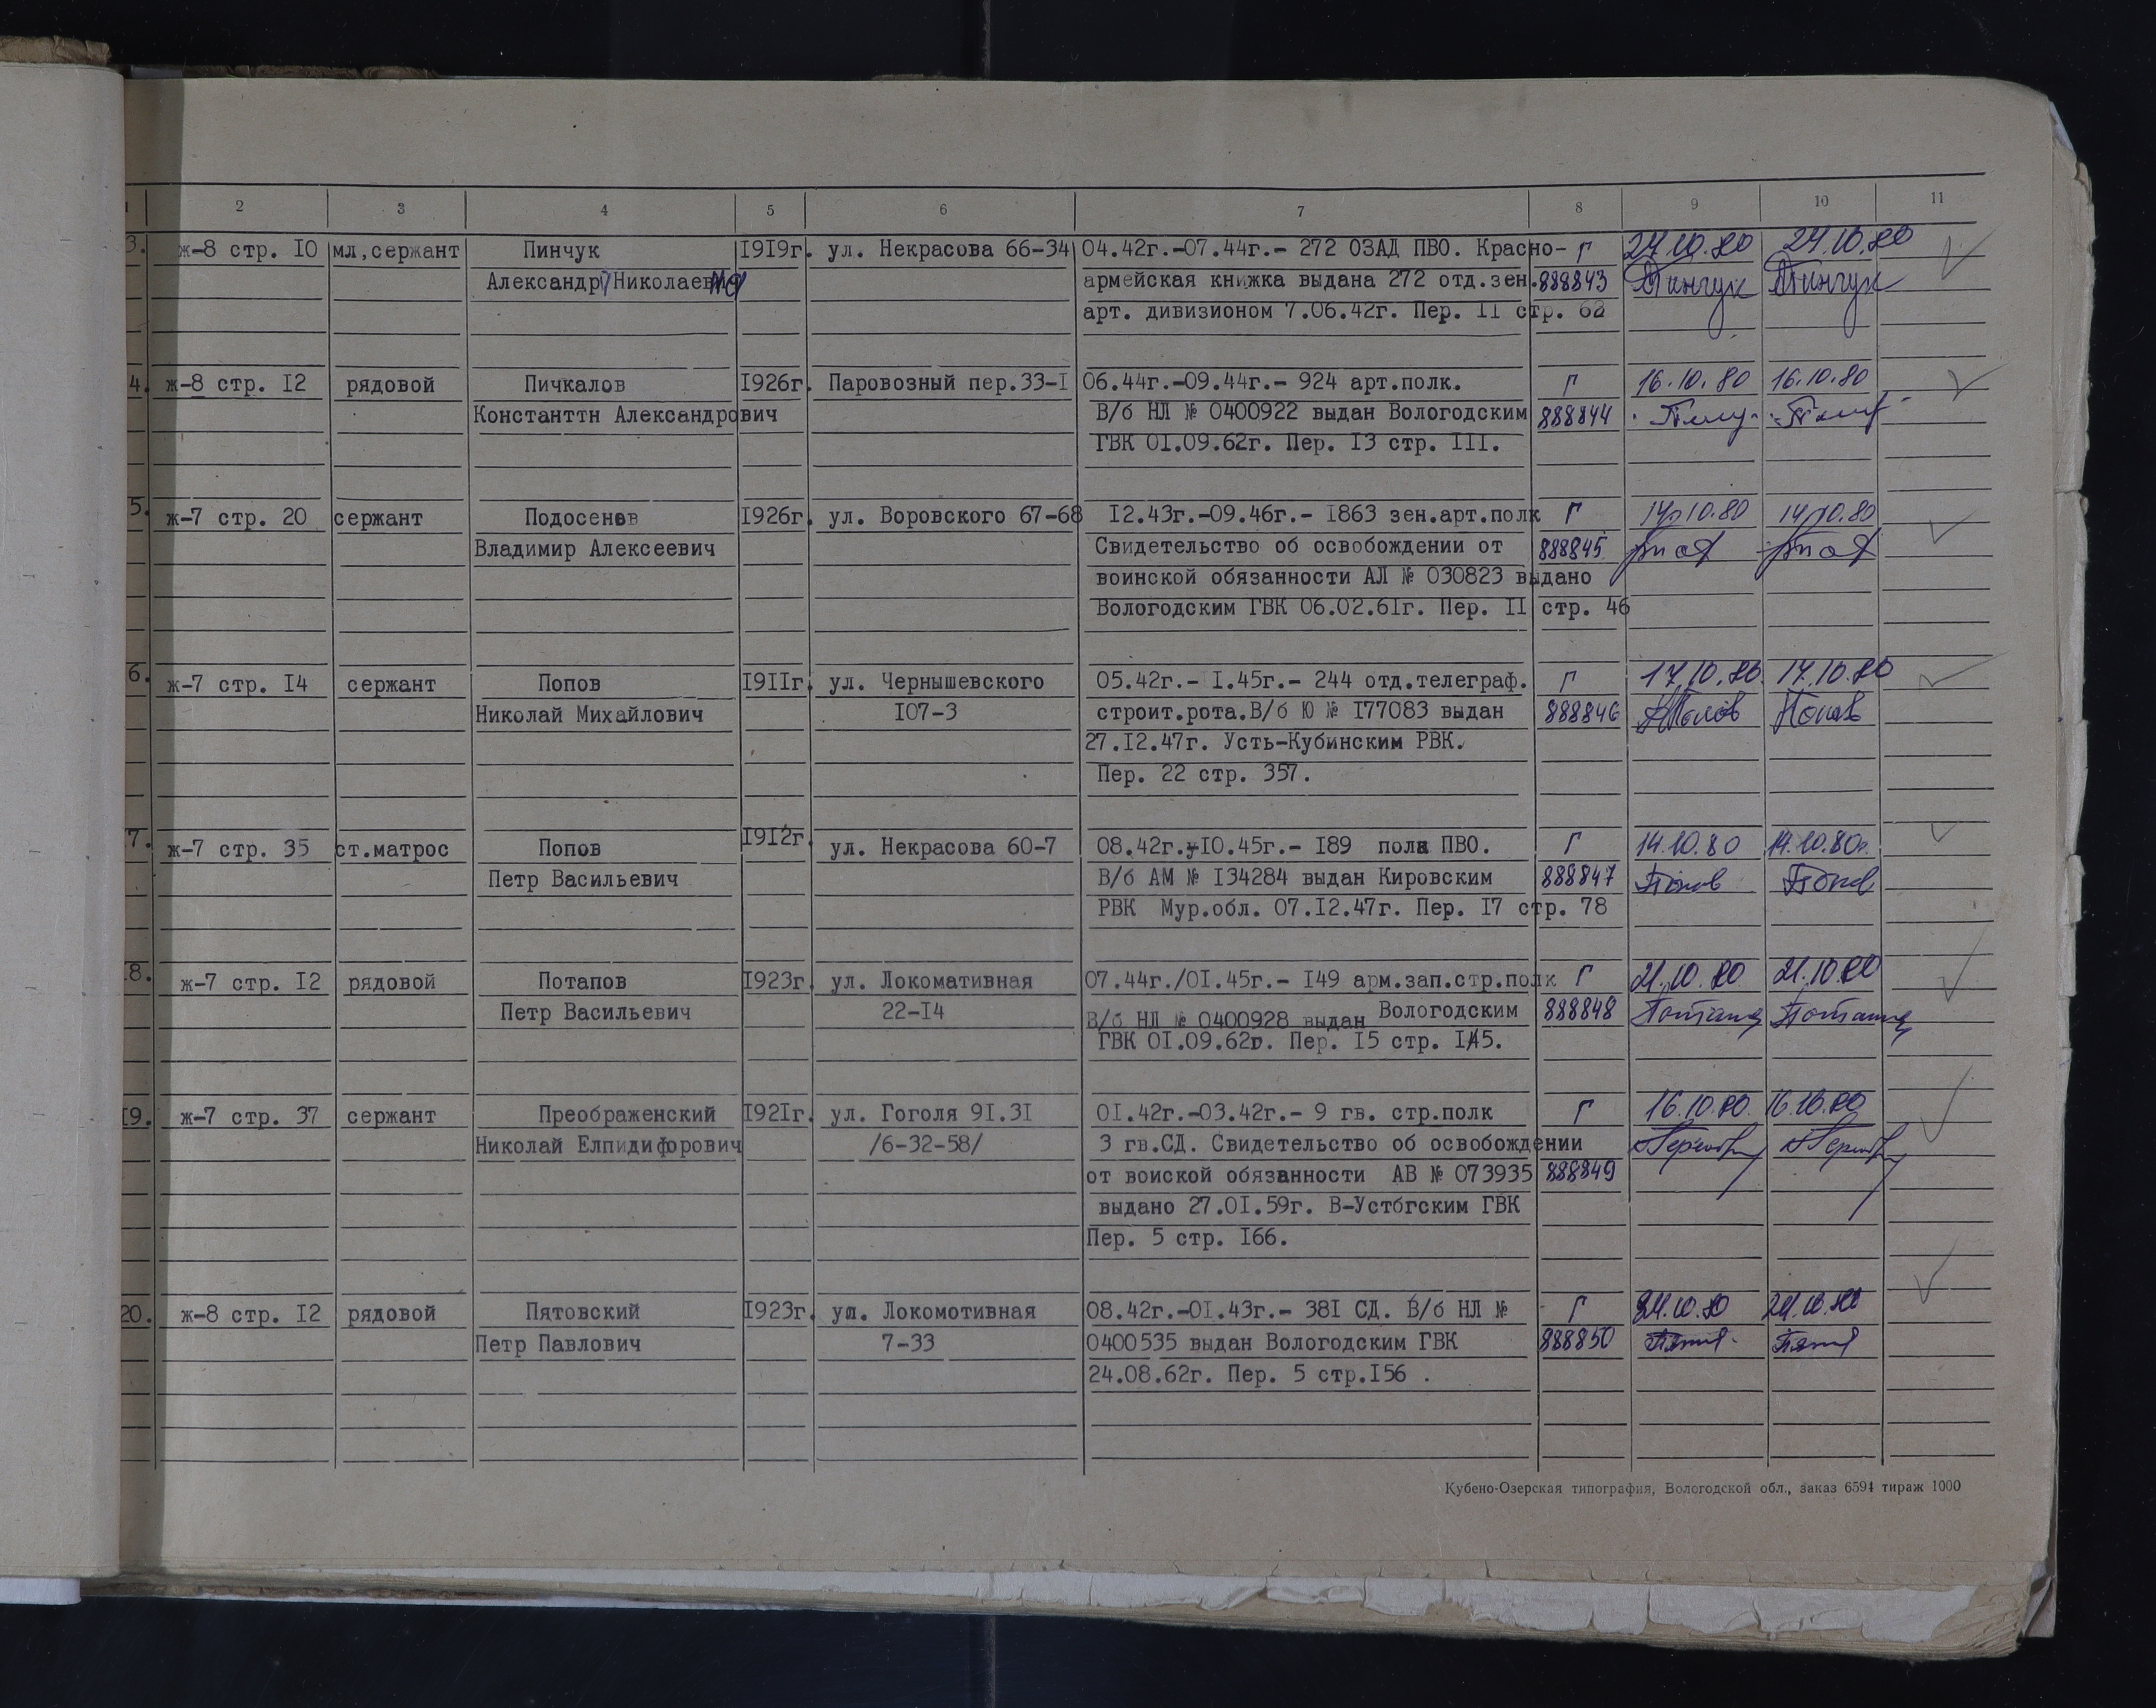 1 2 3 4 5 6 7 8 9 10 11
3. ж-8 стр. 10 мл,сержант Пинчук 1919г. ул. Некрасова 66-34 04.42г.-07.44г.- 272 ОЗАД ПВО. Красно- Г 24.10.80 24.10.80
Александр Николаев армейская книжка выдана 272 отд.зен. 888843 Пинчук Пинчук
арт. дивизионом 7.06.42г. Пер. 11 стр. 62
4. ж-8 стр. 12 рядовой Пичкалов 1926г. Паровозный пер.33-1 06.44г.-09.44г.- 924 арт.полк. Г 16.10.80 16.10.80
Константтн Александрович В/б НЛ № 0400922 выдан Вологодским 888844
ГВК 01.09.62г. Пер. 13 стр. 111.
5. ж-7 стр. 20 сержант Подосенов 1926г. ул. Воровского 67-68 12.43г.-09.46г.- 1863 зен.арт.полк Г 14.10.80 14.10.80
Владимир Алексеевич Свидетельство об освобождении от 888845
воинской обязанности АЛ № 030823 выдано
Вологодским ГВК 06.02.61г. Пер. 11 стр. 46
6. ж-7 стр. 14 сержант Попов 1911г. ул. Чернышевского 05.42г.- 1.45г.- 244 отд.телеграф. Г 17.10.80 17.10.80
Николай Михайлович 107-3 строит.рота.В/б Ю № 177083 выдан 888846 Попов Попов
27.12.47г. Усть-Кубинским РВК.
Пер. 22 стр. 357.
7. ж-7 стр. 35 ст.матрос Попов 1912г. ул. Некрасова 60-7 08.42г.-10.45г.- 189 полк ПВО. Г 14.10.80 14.10.80г.
Петр Васильевич В/б АМ № 134284 выдан Кировским 888847 Попов Попов
РВК Мур.обл. 07.12.47г. Пер. 17 стр. 78
8. ж-7 стр. 12 рядовой Потапов 1923г. ул. Локомативная 07.44г./01.45г.- 149 арм.зап.стр.полк Г 21.10.80 21.10.80
Петр Васильевич 22-14 В/б НЛ № 0400928 выдан Вологодским 888848 Потапов Потапов
ГВК 01.09.62г. Пер. 15 стр. 145.
19. ж-7 стр. 37 сержант Преображенский 1921г. ул. Гоголя 91.31 01.42г.-03.42г.- 9 гв. стр.полк Г 16.10.80 16.10.80
Николай Елпидифорович /6-32-58/ 3 гв.СД. Свидетельство об освобождении
от воиской обязанности АВ № 073935 888849
выдано 27.01.59г. В-Устбгским ГВК
Пер. 5 стр. 166.
20. ж-8 стр. 12 рядовой Пятовский 1923г. ул. Локомотивная 08.42г.-01.43г.- 381 СД. В/б НЛ № Г 24.10.80 24.10.80
Петр Павлович 7-33 0400535 выдан Вологодским ГВК 888850
24.08.62г. Пер. 5 стр.156 .
Кубено-Озерская типография, Вологодской обл., заказ 6594 тираж 1000